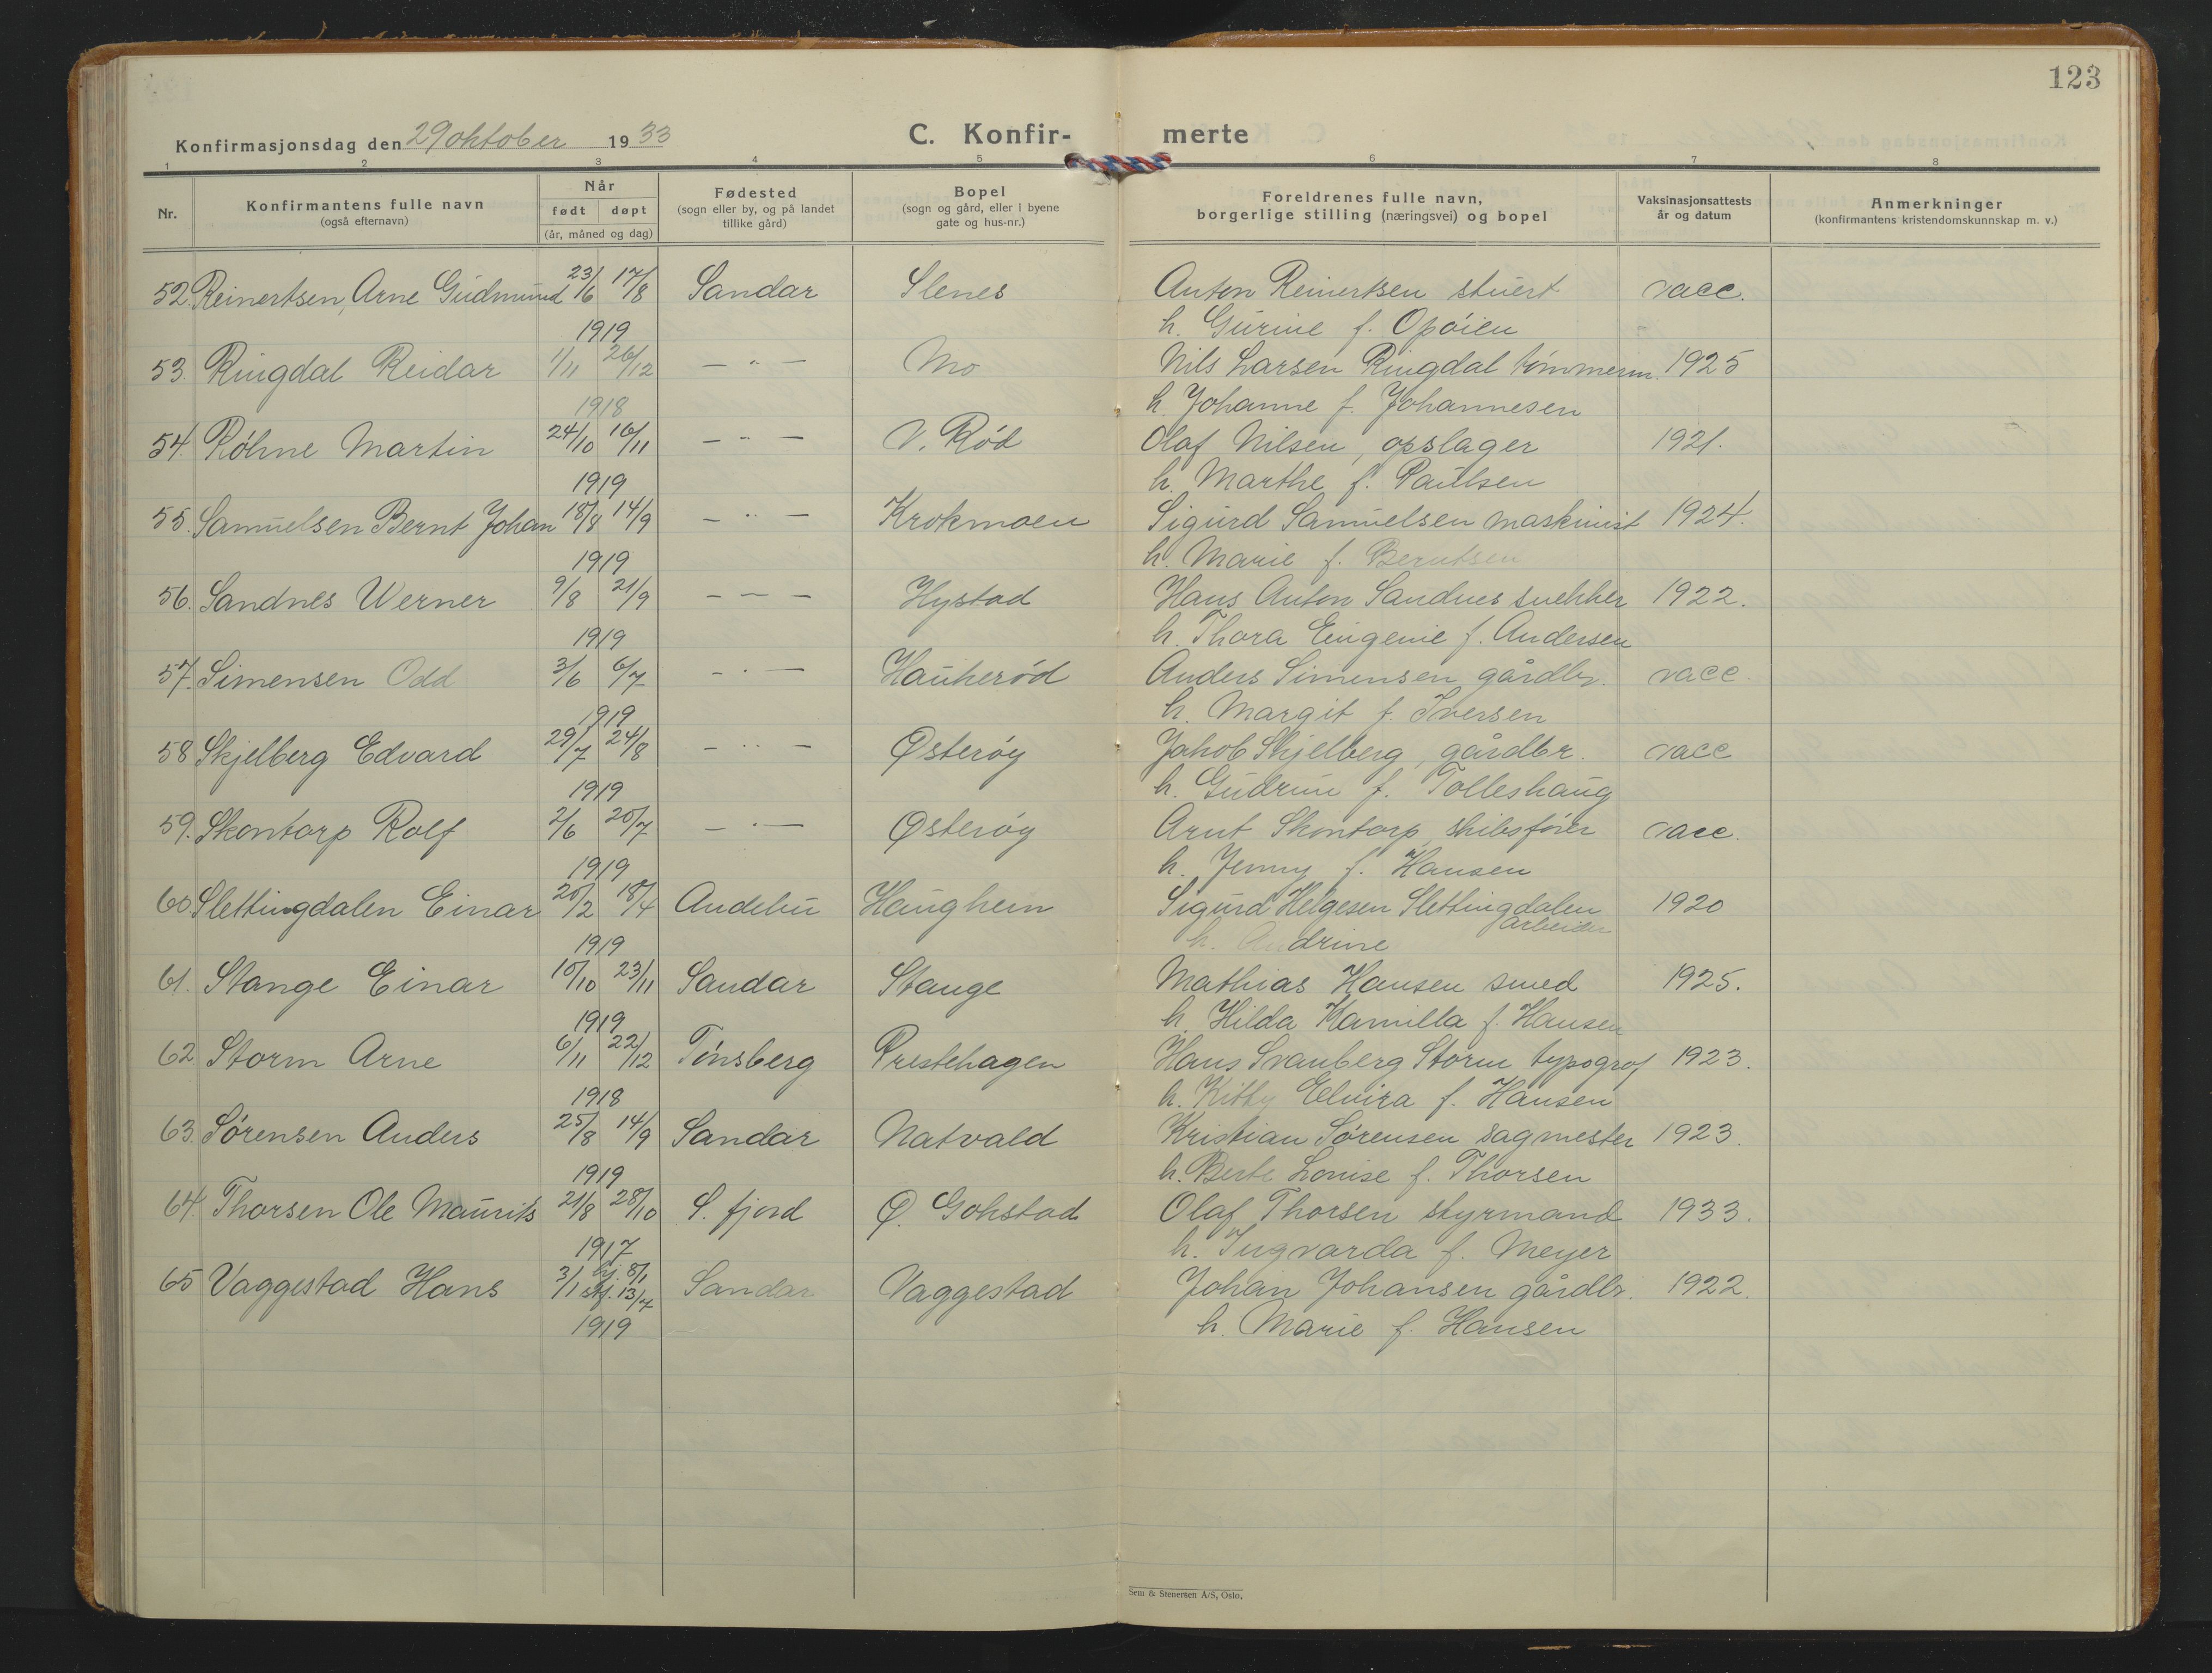 123
Konfirmasjonsdag den 29 oktober 1933
C. Konfir-merte
1 2 3 4 5 6 7 8
Nr. Konfirmantens fulle navn (også efternavn) Når født døpt (år, måned og dag) Fødested (sogn eller by, og på landet tillike gård) Bopel (sogn og gård, eller i byene gate og hus-nr.) Foreldrenes fulle navn, borgerlige stilling (næringsvei) og bopel Vaksinasjonsattests år og datum Anmerkninger (konfirmantens kristendomskunnskap m. v.)
52 Reinertsen, Arne Gudmund 23/6 17/8 Sandar Slenes Anton Reinertsen stuert vacc.
1919 h. Gurine f. Opøien
53. Ringdal Reidar 1/11 26/12 — " — Mo Nils Larsen Ringdal tømmerm. 1925
1918 h. Johanne f. Johannesen
54. Røhne Martin 24/10 16/11 — " — V. Rød Olaf Nilsen, opslager 1921.
1919 h. Marthe f. Paulsen
55. Samuelsen Bernt Johan 18/8 14/9 — " — Krokmoen Sigurd Samuelsen maskinist 1924.
1919 h. Marie f. Berntsen
56. Sandnes Werner 9/8 21/9 — — — Hystad Hans Anton Sandnes snekker 1922.
1919 h. Thora Eugenie f. Andersen
57. Simensen Odd 3/6 6/7 — " — Haukerød Anders Simensen gårdbr. vacc.
1919 h. Margit f. Iversen
58 Skjelberg Edvard 29/7 24/8 — " — Østerøy Jakob Skjelberg, gårdbr. vacc
1919 h. Gudrun f. Tolleshaug
59. Skontorp Rolf 2/6 20/7 — " — Østerøy Arnt Skontorp, skibsfører vacc.
1919 h. Jenny f. Hansen
60 Slettingdalen Einar 20/2 18/4 Andebu Haughem Sigurd Helgesen Slettingdalen arbeider 1920
1919 h. Andrine
61. Stange Einar 10/10 23/11 Sandar Stange Mathias Hansen smed 1925.
1919 h. Hilda Kamilla f. Hansen
62 Storm Arne 6/11 22/12 Tønsberg Prestehagen Hans Svanberg Storm typograf 1923.
1918 h. Kitty Elvira f. Hansen
63. Sørensen Anders 25/8 14/9 Sandar Natvald Kristian Sørensen sagmester 1923.
1919 h. Berte Louise f. Thorsen
64. Thorsen Ole Maurits 21/8 28/10 S. fjord Ø. Gokstad Olaf Thorsen styrmand 1933.
1917 h. Ingvarda f. Meyer
65 Vaggestad Hans 3/1 hj. 8/1 stf. 13/7 Sandar Vaggestad Johan Johansen gårdbr. 1922.
1919 h. Marie f. Hansen
Sem & Stenersen A/S, Oslo.